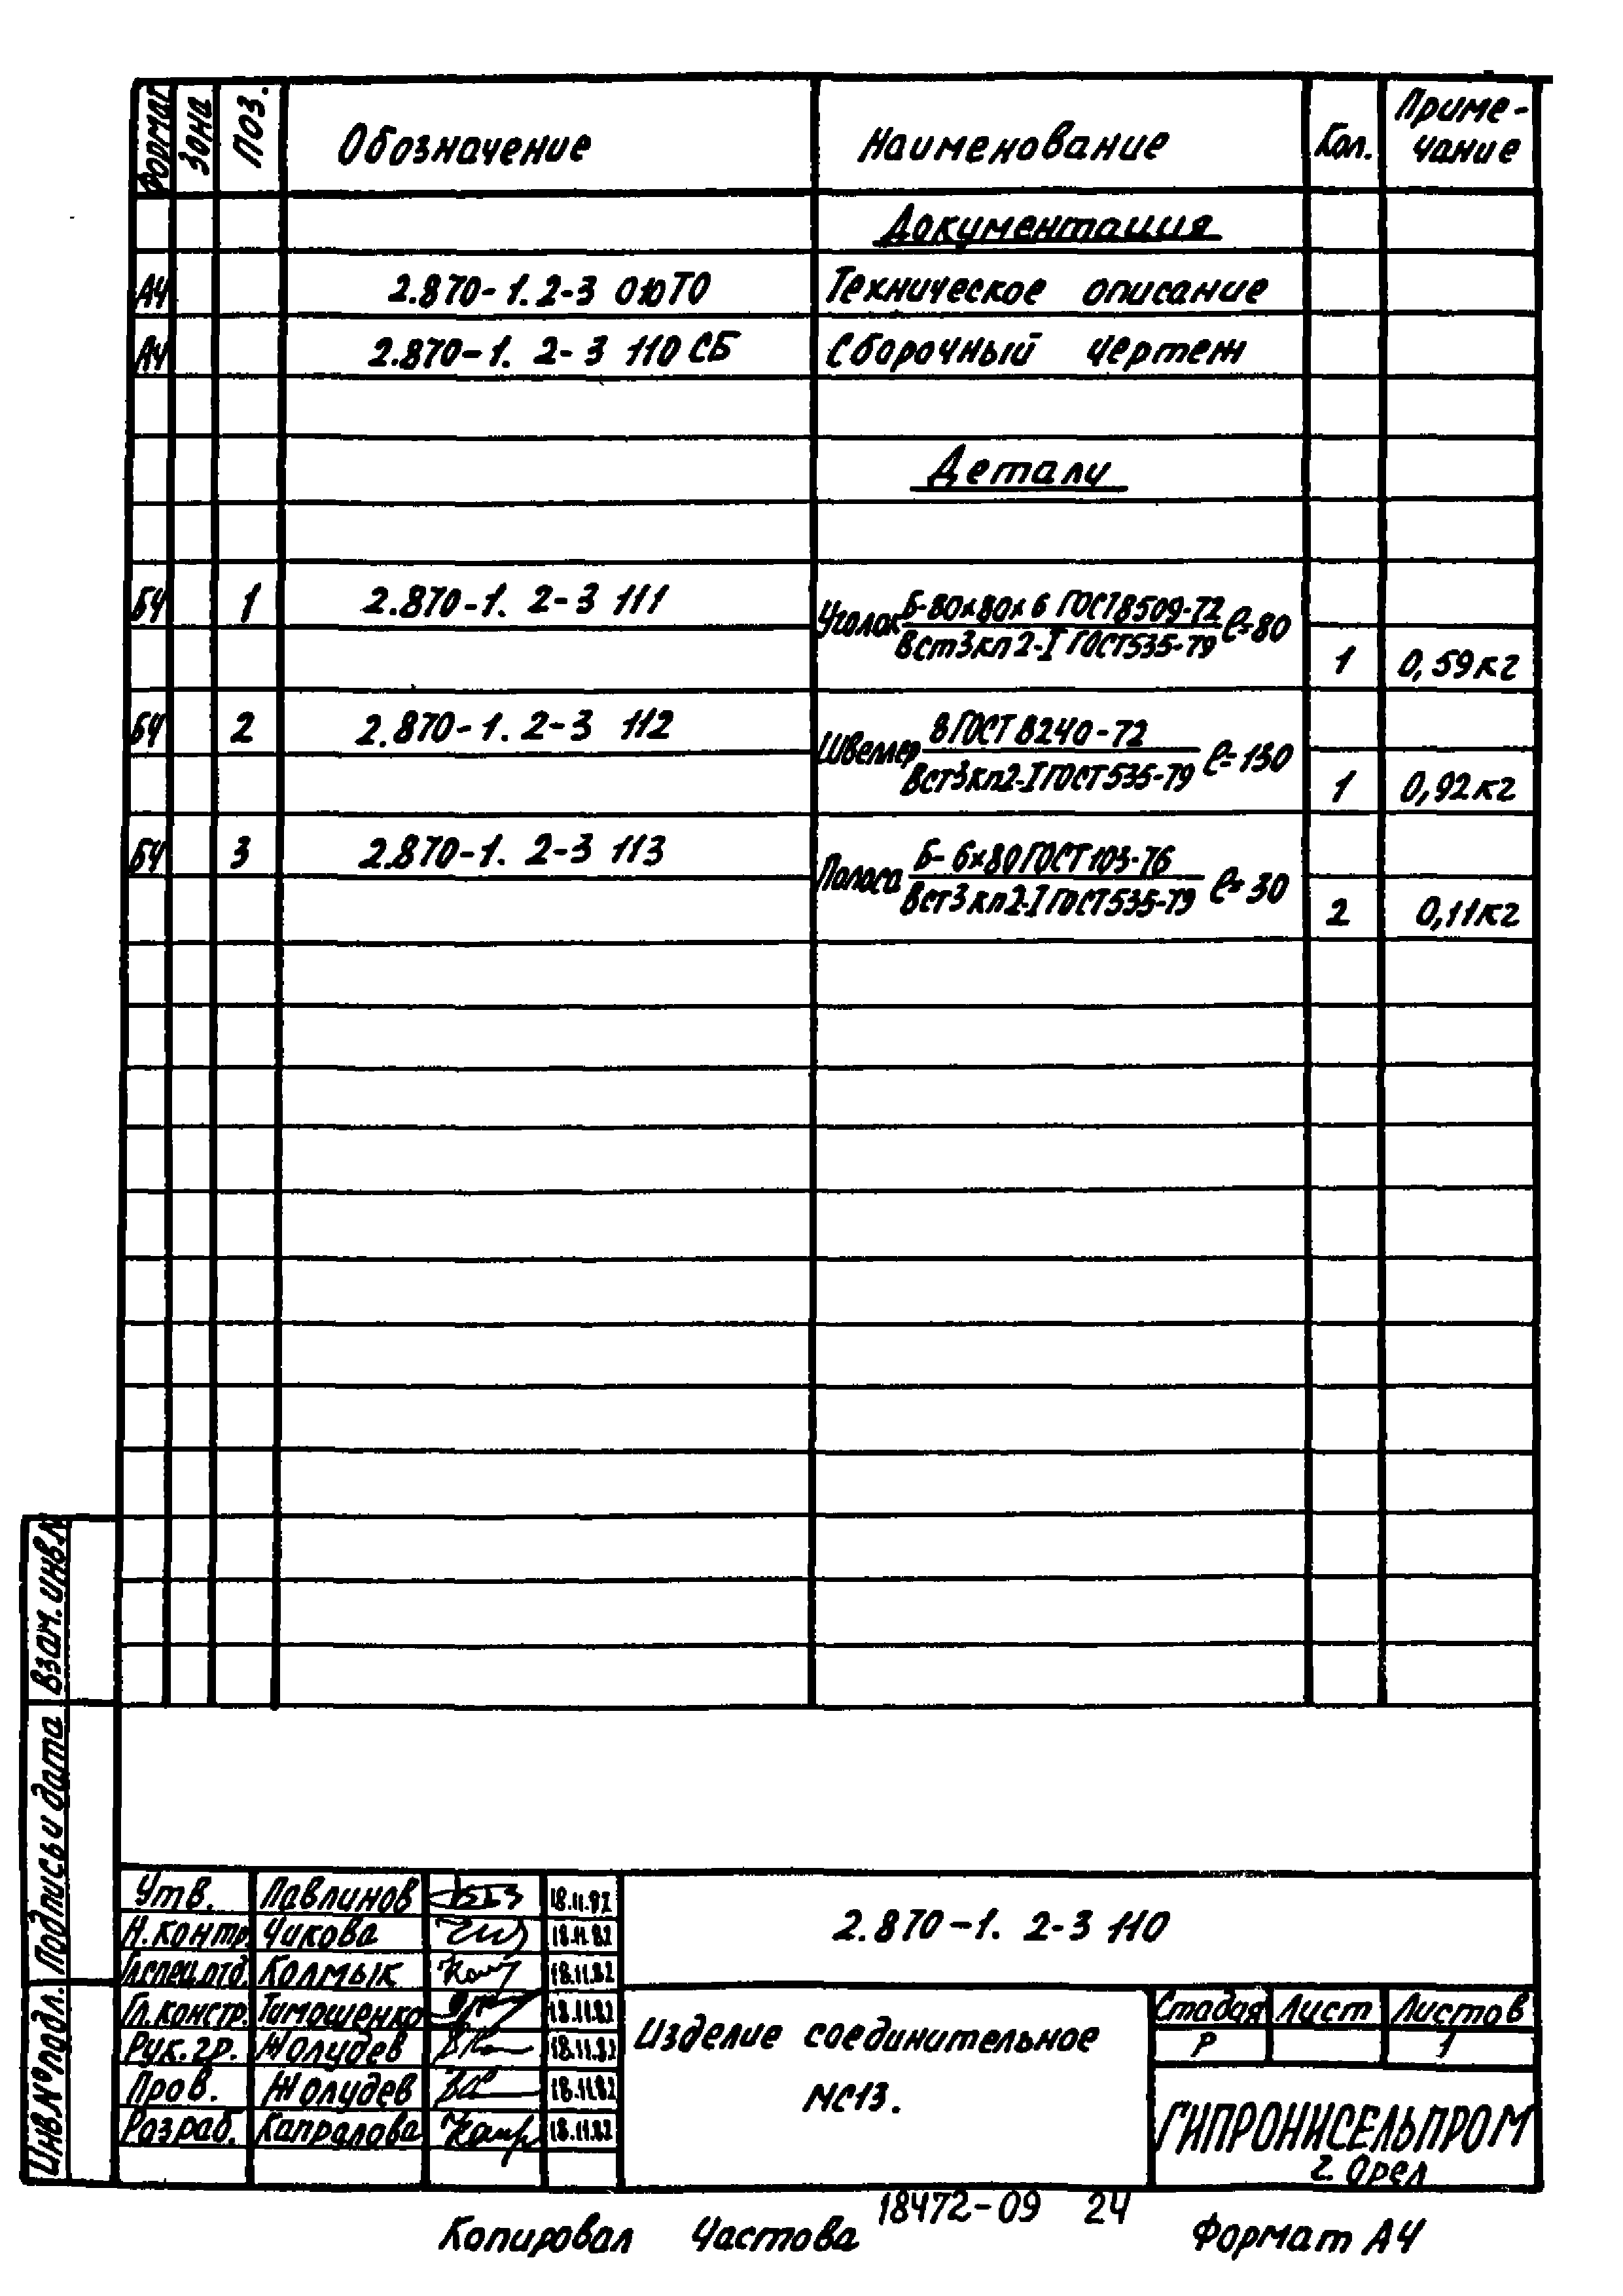 Формат Зона Поз. Обозначение Наименование Кол. Приме-
чание
Документация
А4 2.870-1.2-3 010ТО Техническое описание
А4 2.870-1. 2-3 110 СБ Сборочный чертеж
Детали
БЧ 1 2.870-1. 2-3 111 Уголок Б-80х80х6 ГОСТ 8509-72 ℓ=80
Вст3кп2-I ГОСТ 535-79
1 0,59кг
БЧ 2 2.870-1. 2-3 112 Швеллер 8 ГОСТ 8240-72 ℓ=130
Вст3кп2-I ГОСТ 535-79
1 0,92кг
БЧ 3 2.870-1. 2-3 113 Полоса Б-6х80 ГОСТ 103-76 ℓ=30
Вст3кп2-I ГОСТ 535-79
2 0,11кг
Взам. инв.№
Подпись и дата
Инв.№ подл.
Утв. Павлинов 18.11.82
Н.контр. Чикова 18.11.82
Гл.спец.отд. Колмык 18.11.82
Гл.констр. Тимошенко 18.11.82
Рук. гр. Жолудев 18.11.82
Пров. Жолудев 18.11.82
Разраб. Капралова 18.11.82
2.870-1. 2-3 110
Изделие соединительное
МС13.
Стадия Лист Листов
Р 1
ГИПРОНИСЕЛЬПРОМ
г. Орел
18472-09 24
Копировал Частова Формат А4